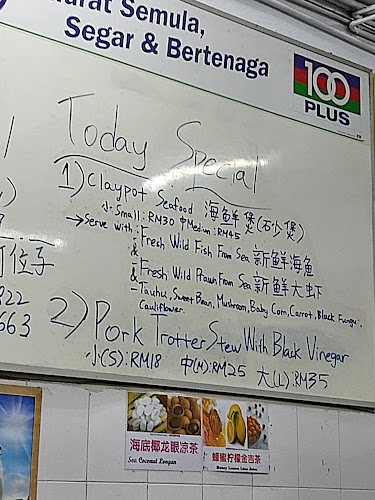 urat Semula,
Segar & Bertenaga
100
PLUS
Today Special
1) Claypot Seafood 海鲜煲(石少煲)
小 Small: RM30 中 Medium: RM45
→ Serve with: Fresh Wild Fish From Sea 新鲜海鱼
&
Fresh Wild Prawn From Sea 新鲜大虾
&
- Tauhu, Sweet Bean, Mushroom, Baby Corn, Carrot, Black Fungus,
Cauliflower.
位子
822
663
2) Pork Trotter Stew With Black Vinegar
小(S): RM18 中(M): RM25 大(L): RM35
海底椰龙眼凉茶
Sea Coconut Longan
蜂蜜柠檬金吉茶
Honey Lemon Lime Juice